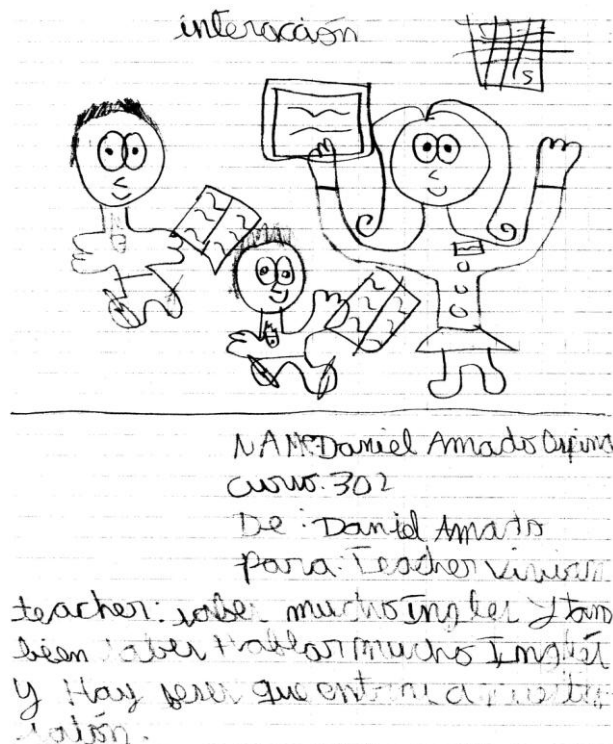 interacción
NAME: Daniel Amado Ospina
curso. 302
De: Daniel Amado
para: Teacher Vivian
teacher: sabe mucho Ingles y tan
bien saber Hablar mucho Inglés
y Hay veses que entra a nuestro
salón.